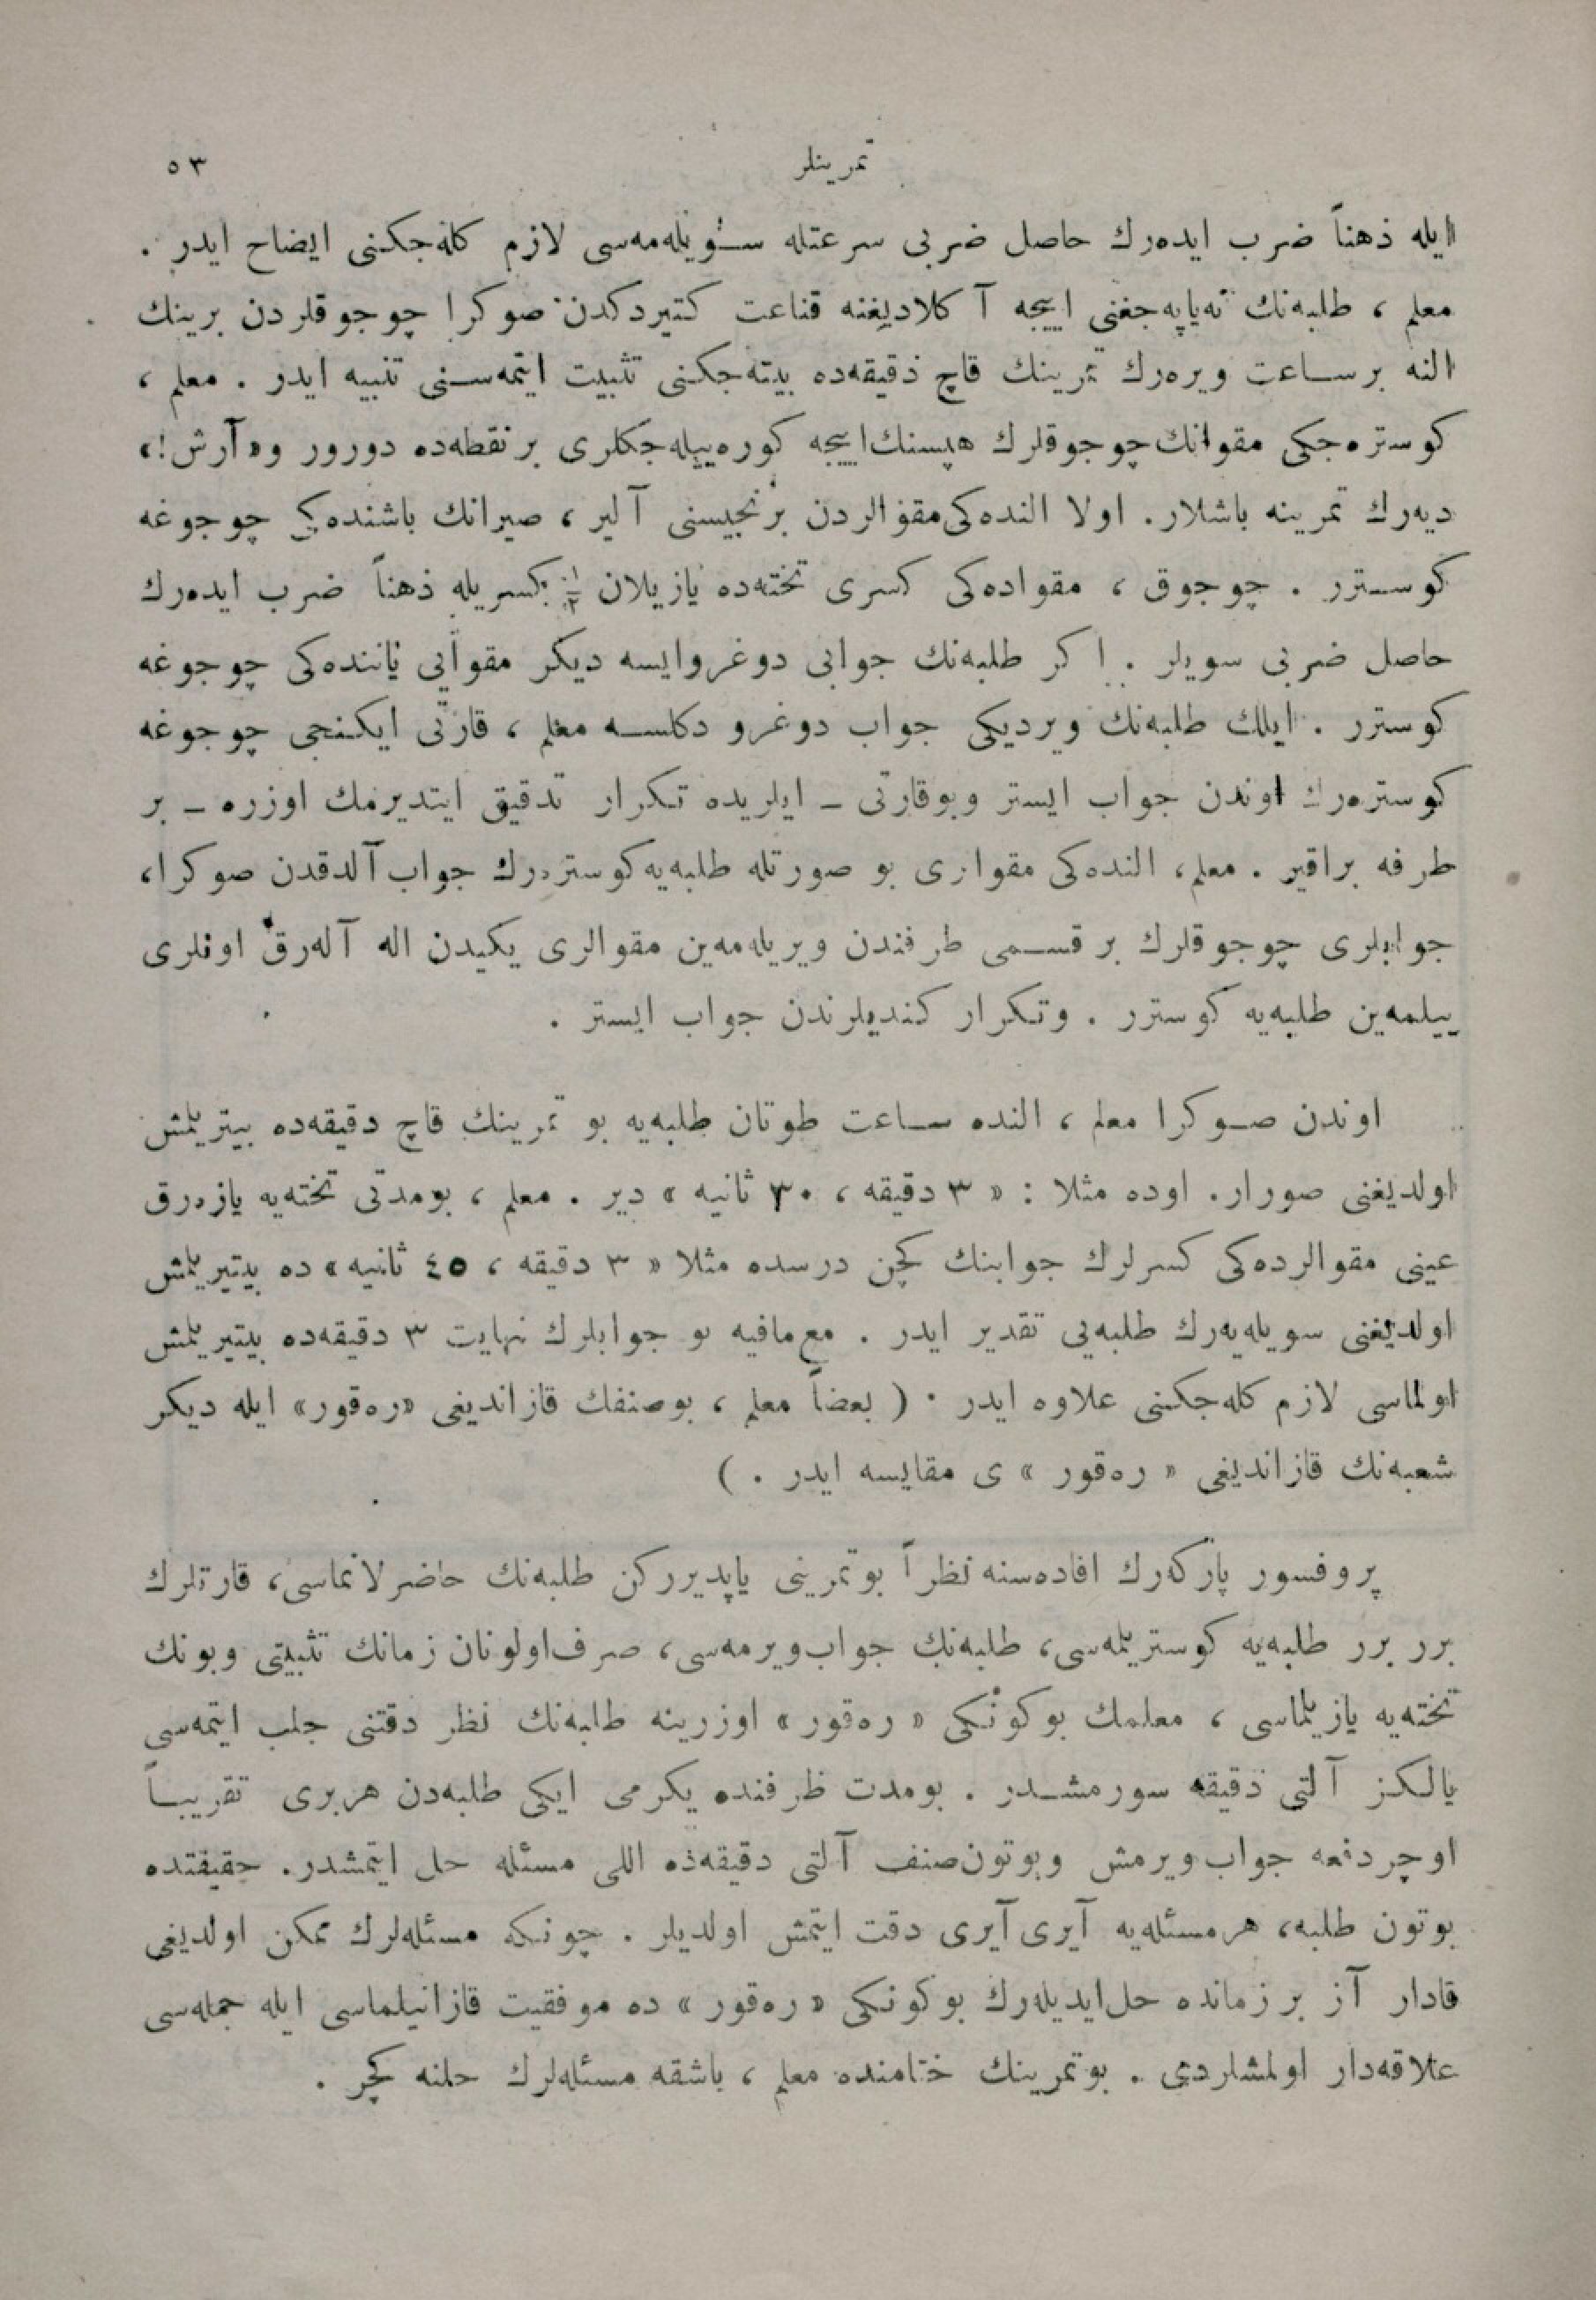 تمرینلر
٥٣
ایله ذهناً ضرب ایده‌رك حاصل ضربی سرعتله سـویله‌مه‌سی لازم كله‌جكنی ایضاح ایدر .
معلم ، طلبه‌نك نه‌یاپه‌جغنی اییجه آ كلادیغنه قناعت كتیردكدن صوكرا چوجوقلردن برینك
النه برسـاعت ویره‌رك تمرینك قاچ دقیقه‌ده بیته‌جكنی تثبیت ایتمه‌سـنی تنبیه ایدر . معلم ،
كوستره‌جكی مقوانك چوجوقلرك هپسنك اییجه كوره‌بیله‌جكلری برنقطه‌ده دورور و« آرش!»
دیه‌رك تمرینه باشلار . اولا النده‌كی مقوالردن برنجیسنی آلیر ، صیرانك باشنده‌كی چوجوغه
كوسـترر . چوجوق ، مقواده‌كی كسری تخته‌ده یازیلان ١/٢ كسریله ذهناً ضرب ایده‌رك
حاصل ضربی سویلر . اكر طلبه‌نك جوابی دوغروایسه دیكر مقوایی یاننده‌كی چوجوغه
كوسترر . ایلك طلبه‌نك ویردیكی جواب دوغرو دكلسـه معلم ، قارتی ایكـنجی چوجوغه
كوستره‌رك اوندن جواب ایستر وبوقارتی ـ ایلریده تـكرار تدقیق ایتدیرمك اوزره ـ بر
طرفه براقیر . معلم، النده‌كی مقوالری بو صورتله طلبه‌یه كوستره‌رك جواب آلدقدن صوكرا،
جوابلری چوجوقلرك بر قسـمی طرفندن ویریله‌مه‌ین مقوالری یكیدن اله آله‌رق اونلری
بیلمه‌ین طلبه‌یه كوسترر . وتـكرار كندیلرندن جواب ایستر .
اوندن صـوكرا معلم ، النده سـاعت طوتان طلبه‌یه بو تمرینك قاچ دقیقه‌ده بیتریلمش
اولدیغنی صورار. اوده مثلا : « ٣ دقیقه ، ٣٠ ثانیه » دیر . معلم ، بومدتی تخته‌یه یازه‌رق
عینی مقوالرده‌كی كسرلرك جوابنك كچن درسده مثلا « ٣ دقیقه ، ٤٥ ثانیه » ده بیتیریلمش
اولدیغنی سویله‌یه‌رك طلبه‌یی تقدیر ایدر . مع‌مافیه بو جوابلرك نهایت ٣ دقیقه‌ده بیتیریلمش
اولماسی لازم كله‌جكنی علاوه ایدر . ( بعضاً معلم ، بوصنفك قازاندیغی «ره‌قور» ایله دیكر
شعبه‌نك قازاندیغی « ره‌قور » ی مقایسه ایدر . )
پروفسور پاركه‌رك افاده‌سنه نظراً بوتمرینی یاپدیرركن طلبه‌نك حاضرلانماسی، قارتلرك
برر برر طلبه‌یه كوستریلمه‌سی، طلبه‌نك جواب‌ویرمه‌سی، صرف‌اولونان زمانك تثبیتی وبونك
تخته‌یه یازیلماسی ، معلمك بوكونكی « ره‌قور » اوزرینه طلبه‌نك نظر دقتنی جلب ایتمه‌سی
یالـكز آلتی دقیقه سورمشـدر . بومدت ظرفنده یكرمی ایكی طلبه‌دن هربری تقریبـاً
اوچردفعه جواب‌ویرمش وبوتون‌صنف آلتی دقیقه‌ده اللی مسئله حل ایتمشدر. حقیقتده
بوتون طلبه، هرمسئله‌یه آیری آیری دقت ایتمش اولدیلر . چونكه مسئله‌لرك ممكن اولدیغی
قادار آز بر زمانده حل‌ایدیله‌رك بوكونكی « ره‌قور » ده موفقیت قازانیلماسی ایله جمله‌سی
علاقه‌دار اولمشلردی . بوتمرینك ختامنده معلم ، باشقه مسئله‌لرك حلنه كچر .